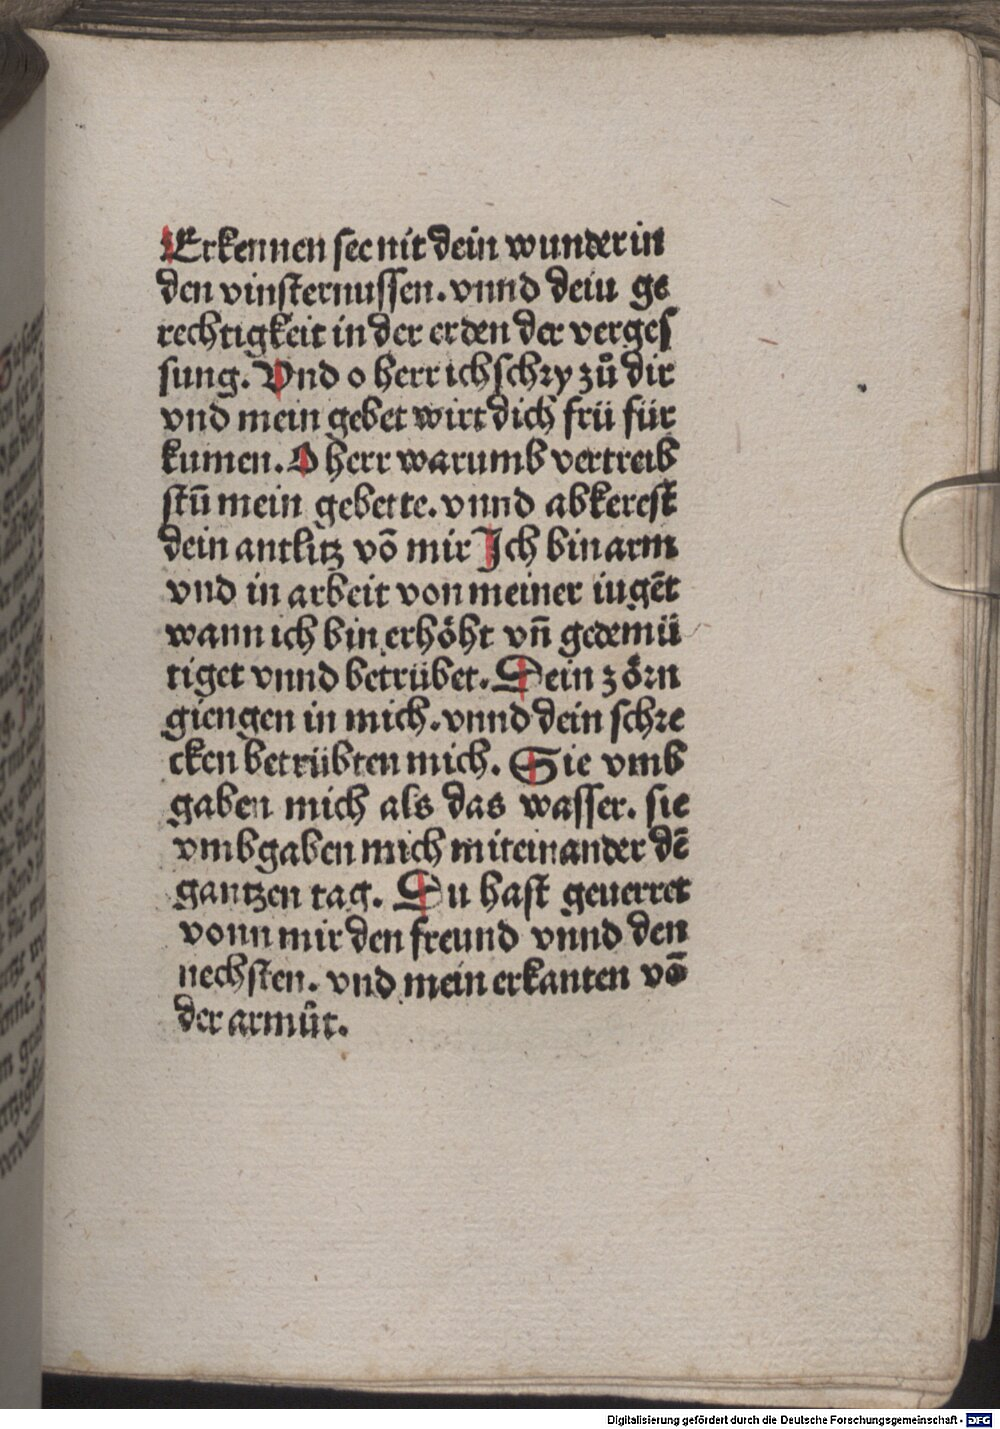 Erkennen see nit dein wunder in
den vinsternussen. vnnd dein ge
rechtigkeit in der erden der verges
sung. Vnd o herr ich schry zů dir
vnd mein gebet wirt dich frü für
kumen. O herr warumb vertreib
stū mein gebette. vnnd abkerest
dein antlitz vō mir Ich bin arm
vnd in arbeit von meiner iugēt
wann ich bin erhöht vn̄ gedemü
tiget vnnd betrübet. Dein zörn
giengen in mich. vnnd dein schre
cken betrübten mich. Sie vmb
gaben mich als das wasser. sie
vmbgaben mich miteinander dē
gantzen tag. Du hast geuerret
vonn mir den freund vnnd den
nechsten. vnd mein erkanten vō
der armůt.
Digitalisierung gefördert durch die Deutsche Forschungsgemeinschaft - DFG